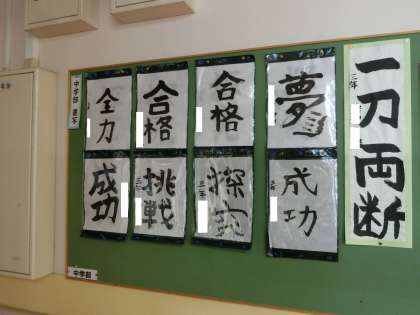 中学部 書写
全力
合格
合格
夢
一刀両断
三年
成功
挑戦
三年
探究
三年
成功
中学部